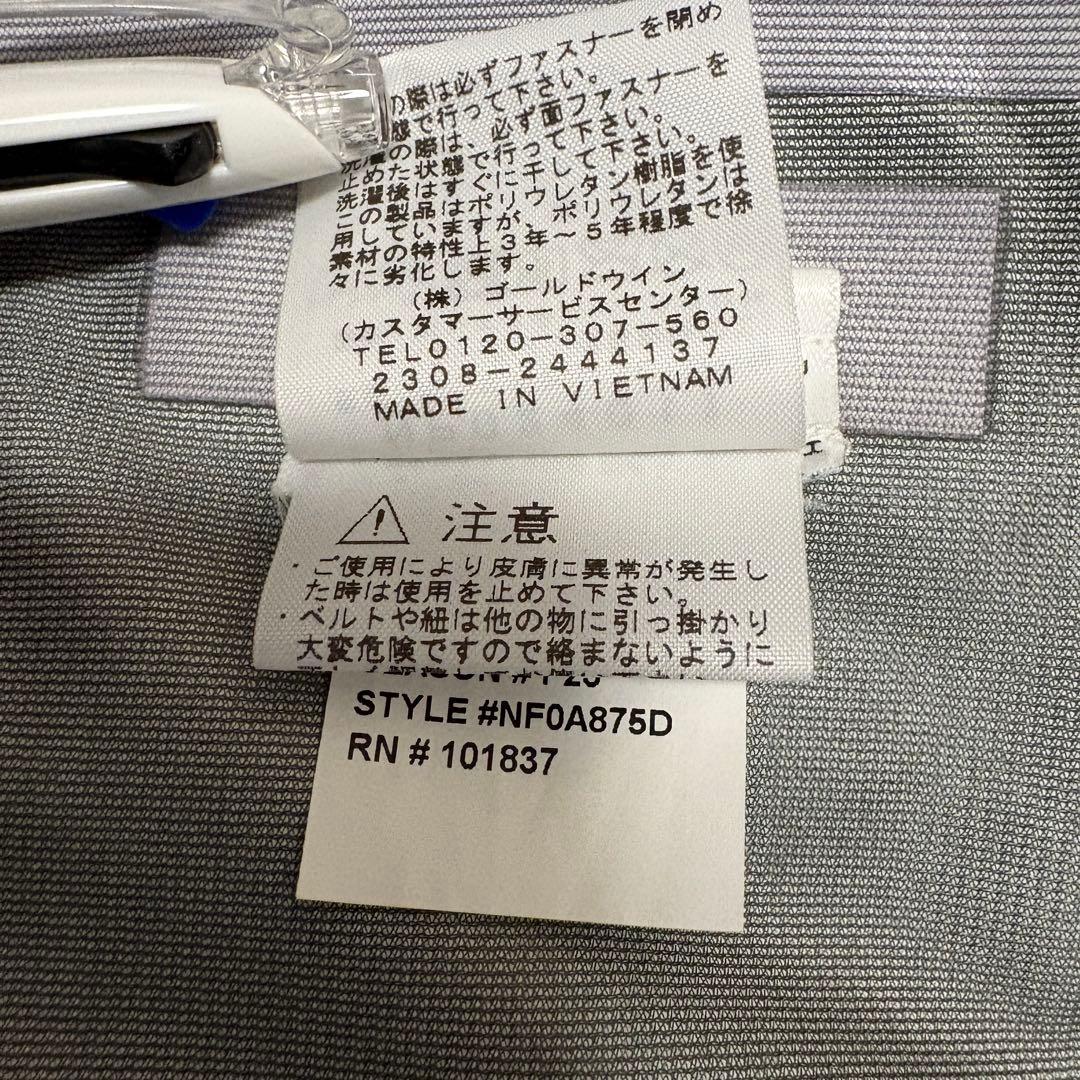 の際は必ずファスナーを閉め
態で行って下さい。
の際は、必ず面ファスナーを
た状態で行って下さい。
濯後はすぐに干して下さい。
の製品はポリウレタン樹脂を使
用しています。ポリウレタンは
素材の特性上3年〜5年程度で徐
々に劣化します。
(株)ゴールドウイン
(カスタマーサービスセンター)
TEL0120-307-560
2308-2444137
MADE IN VIETNAM
注意
・ご使用により皮膚に異常が発生し
た時は使用を止めて下さい。
・ベルトや紐は他の物に引っ掛かり
大変危険ですので絡まないように
STYLE #NF0A875D
RN # 101837